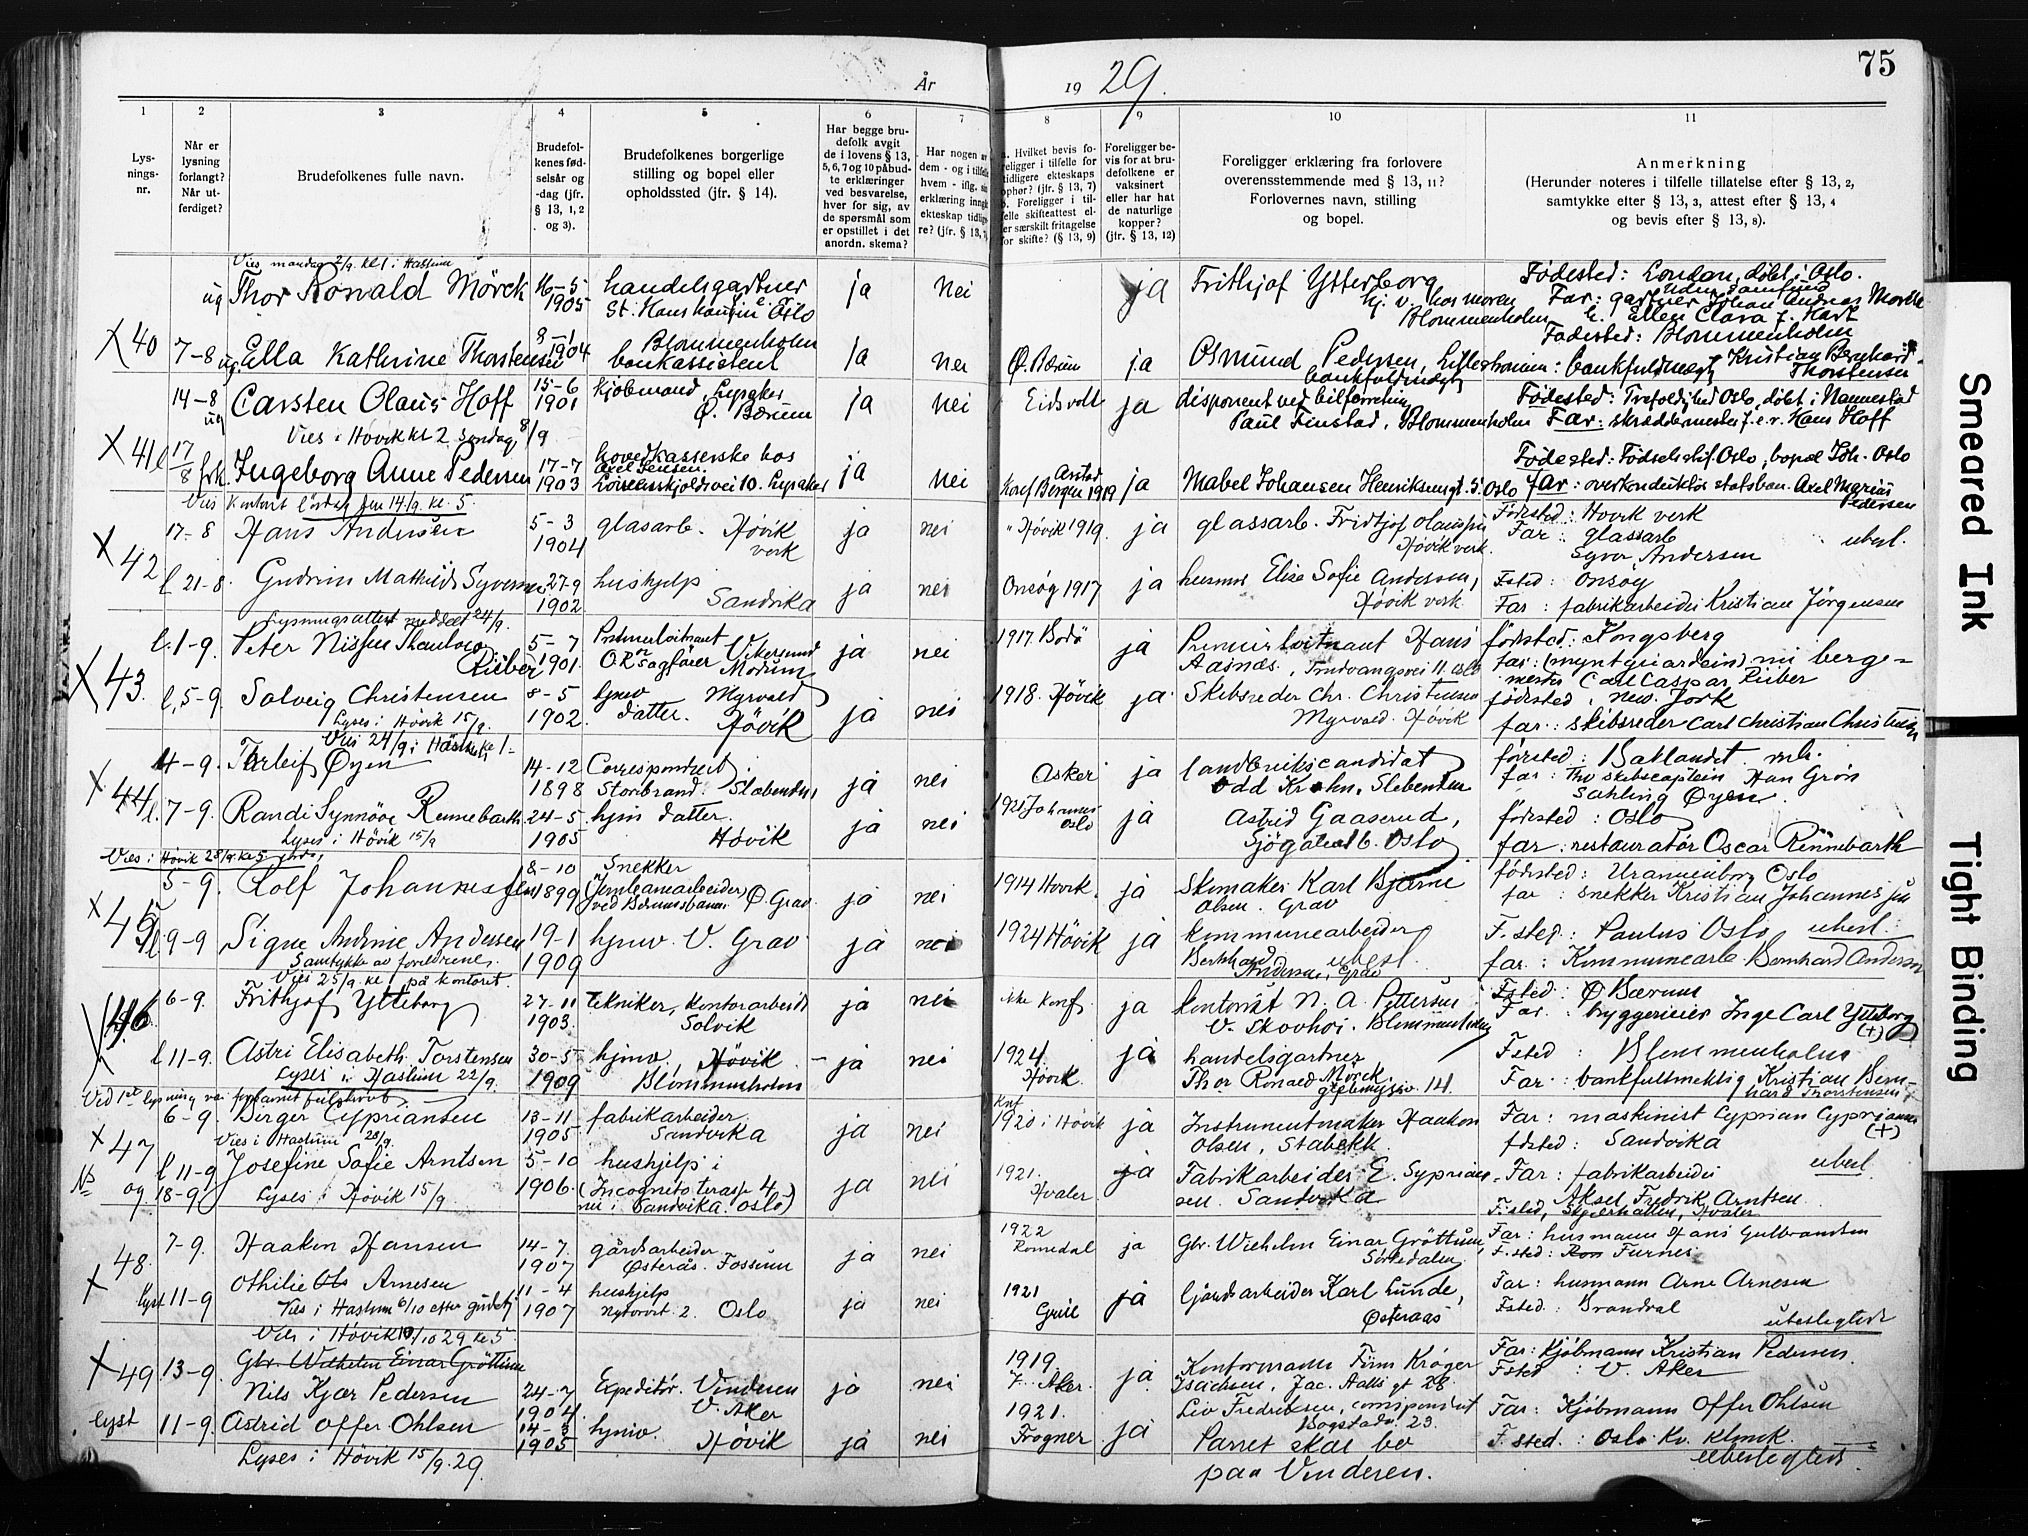 75
År 1929.
1 2 3 4 5 6 7 8 9 10 11
Lys-
nings-
nr.
Når er
lysning
forlangt?
Når ut-
ferdiget?
Brudefolkenes fulle navn.
Brudefol-
kenes fød-
selsår og
-dag (jfr.
§ 13, 1, 2
og 3).
Brudefolkenes borgerlige
stilling og bopel eller
opholdssted (jfr. § 14).
Har begge bru-
defolk avgit
de i lovens § 13,
5, 6, 7 og 10 påbud-
te erklæringer
ved besvarelse,
hver for sig, av
de spørsmål som
er opstillet i det
anordn. skema?
Har nogen av
dem - og i tilfelle
hvem - iflg. sin
erklæring inngått
ekteskap tidlige-
re? (jfr. § 13,
a. Hvilket bevis fo-
religger i tilfelle for
tidligere ekteskaps
ophør? (jfr. § 13, 7)
b. Foreligger i til-
felle skifteattest el-
ler særskilt fritagelse
for skifte? (§ 13, 9)
Foreligger be-
vis for at bru-
defolkene er
vaksinert
eller har hat
de naturlige
kopper?
(jfr. § 13, 12)
Foreligger erklæring fra forlovere
overensstemmende med § 13, 11?
Forlovernes navn, stilling
og bopel.
Anmerkning
(Herunder noteres i tilfelle tillatelse efter § 13, 2,
samtykke efter § 13, 3, attest efter § 13, 4
og bevis efter § 13, 8).
Vies mandag 2/9. kl 1 i Haslum
ug Thor Ronald Mörck 16-5 1905 handelsgartner St. Hanshaugen Oslo ja nei ja Frithjof Ytterborg Blommenholm Fødested: London, døbt i Oslo.
Far: gartner Johan Andreas Mörck
Ellen Clara f. Hart
X 40 7-8 ug Ella Kathrine Thorstensen 8-1 1904 Blommenholm bankassistent ja nei Ø. Bærum ja Osmund Pedersen, Lillestrømm: bankfuldmægt Fødested: Blommenholm
Kristian Bernhard Thorstensen
14-8 ug Carsten Olaus Hoff 15-6 1901 kjøbmand, Lysaker Ø. Bærum ja nei Eidsvoll ja disponent ved bilforretning Paul Finstad, Blommenholm Fødested: Trefoldighed Oslo, døbt i Nannestad
Far: skræddermester f.e.v. Hans Hoff
Vies i Høvik kl 2 søndag 8/9
X 41 l 17/8 frk. Ingeborg Anne Pedersen 17-7 1903 hovedkasserske hos Axel Jensen. Lysaker ja nei Konf. Bergen 1919 ja Mabel Johansen Henriksensgt. 5. Oslo Fødested: Fødselsstif. Oslo, bopæl Joh. Oslo
far: overkonduktør statsban. Axel Marius Pedersen
Vies kontoret lørdag den 14/9. kl. 5.
X 42 17-8 Hans Andersen 5-3 1904 glasarb. Høvik verk ja nei " Høvik 1919 ja glassarb. Fridtjof Olaussen Høvik verk. Fødested: Hovik verk
Far: glassarb Syver Andersen ubesl.
l 21-8. Gudrun Mathilde Syversen 27-9 1902 hushjelp Sandvika ja nei Onsøy 1917 ja husmor Elise Sofie Andersen, Høvik verk Fsted: Onsøy
Far: fabrikarbeider Kristian Jørgensen
Lysningsattest meddelt 24/9.
X 43. l. 1-9. Peter Nissen Rüber 5-7 1901. Premierløitnant O.R sagfører Vikersund Modum ja nei 1917. Bodö ja Premierløitnant Hans Aasnæs, Trudvangsvei 11. Oslo fødested: Kongsberg
Far: (myntguardein) nu berge-
mester Carl Caspar Rüber
l, 5-9. Solveig Christensen 8-5 1902. hjmv datter. Myrvold Høvik ja nei 1918. Høvik ja. Skibsreder Chr. Christensen Myrvold. Høvik fødested. New. York
far: skibsreder Carl Christian Christensen
Lyses i Høvik 15/9.
Vies 24/9 i Haslum kl 1-
X 44 4-9. Thorleif Øyen 14-12 1898 Correspondent Storbrand. Slæbenden ja nei Asker ja landbrukscandidat Odd Krohn, Slebenden fødested: Baklandet
far: Thv skibscaptein Han Grön Sahling Øyen
l. 7-9. Randi Synnöve Rennebarth 24-5 1905 hjm datter. Høvik ja nei 1921 Johannes Oslo ja Astrid Gaaserud, Sjøgaten 6. Oslo fødested: Oslo
far: restauratør Oscar Rennebarth
Lyses i Høvik 15/9
Vies i Høvik 28/9. kl 5
X 45 5-9. Rolf Johannessen 8-10 1899 Snekker (jernbanearbeider ved Bærumsbanen) Ø. Grav ja nei 1914 Hovik. ja Skomaker Karl Bjarne Olsen. Grav fødested: Uranienborg Oslo
far: snekker Kristian Johannessen
l 9-9 Signe Andrine Andersen 19-1 1909 hjmv. V. Grav ja nei 1924 Høvik ja kommunearbeider Bernhard Andersen, Grav ubesl. F.sted: Paulus Oslo ubesl.
far: Kommunearb Bernhard Andersen
Samtykke av foreldrene.
Vies 25/9. kl 1 på kontoret.
X 46 6-9. Frithjof Ytteborg 27-11 1903. tekniker, kontorarbeide Solvik ja nei ikke konf ja kontorist N. A. Pettersen V. Skovhoi. Blommenholm F.sted: Ø Bærum
Far: bryggerieier Inge Carl Ytteborg (+)
l 11-9. Astri Elisabeth Torstensen 30-5 1909 hjmv. Høvik Blommenholm - ja nei 1924 Høvik ja handelsgartner Thor Ronald Mörck. 14. F.sted: Blommenholm
Far: bankfullmektig Kristian Bern-
hard Thorstensen
Lyses i Haslum 22/9.
X 47 6-9. Birger Cypriansen 13-11 1905 fabrikarbeider Sandvika ja nei Knf 1920 i Høvik ja Instrumentmaker Haakon Olsen, Stabekk Far: maskinist Cyprian Cypriansen (+)
fsted: Sandvika
Vies i Haslum 28/9.
NB l 11-9 og 18-9 Josefine Sofie Arntsen 5-10 1906. hushjelp i (Incognito terasse 4 nu i Sandvika. Oslo) ja nei 1921. Hvaler ja Fabrikarbeider E. Syprian-
sen. Sandvika Far: fabrikarbeider ubesl
Aksel Fredrik Arntsen
F.sted, Skjærhallen, Hvaler
Lyses i Høvik 15/9.
48. 7-9. Haakon Hansen 14-7. 1907 gårdsarbeider Østerås. Fossum ja nei 1922 Romedal ja Gbr. Wilhelm Einar Gröttum, Sørkedalen Far: husmann Hans Gulbrandsen
F.sted: Furnes.
X lyst 11-9 Othilie Arnesen 11-4 1907 hushjelp Nytorvet 2. Oslo ja nei 1921 Grue ja Gårdsarbeider Karl Lunde, Østeraas Far: husmann Arne Arnesen
Fsted: Brandval ubeslegtede
Vies i Haslum 6/10 efter gudstj
Vies i Høvik 10/10 29 kl 5
Gbr. Wilhelm Einar Gröttum
X 49. 13-9. Nils Kjær Pedersen 24-7 1904. Expeditør. Vinderen V. Aker ja nei 1919 V. Aker ja Kontormann Finn Krøger Isachsen, Jac. Aalls gt 28 Far: Kjøbmann Kristian Pedersen.
Fsted: V. Aker
lyst 11-9. Astrid Offer Ohlsen 14-3 1905 hjmv. Høvik ja nei 1921. Frogner ja Liv Fredriksen, correspondent Bogstadv. 23. Far: Kjøbmann Offer Ohlsen
F.sted.: Oslo Kv. Klinik.
ubeslegtede
Lyses i Høvik 15/9. 29.
Parret skal bo
paa Vinderen.
Smeared Ink
Tight Binding